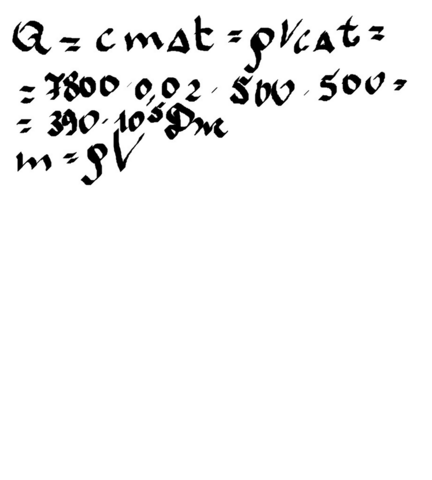 Q = c m Δ t = ρ V c Δ t =
= 7800 · 0,02 · 500 · 500 =
= 390 · 10⁵ Дж
m = ρ V